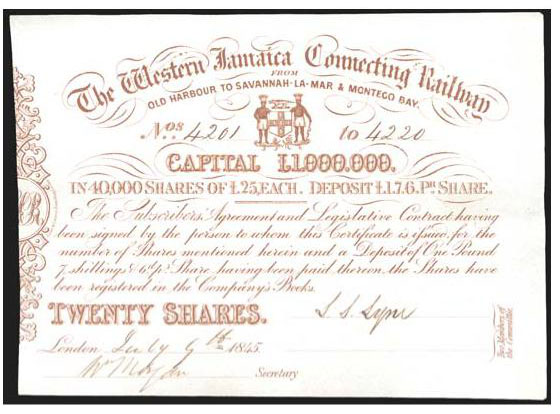 The Western Jamaica Connecting Railway
FROM
OLD HARBOUR TO SAVANNAH-LA-MAR & MONTEGO BAY.
Nos. 4201 to 4220
CAPITAL £1,000,000.
IN 40,000 SHARES OF £25, EACH. DEPOSIT £1.7.6. PR SHARE.
The Subscribers' Agreement and Legislative Contract having
been signed by the person to whom this Certificate is issued for the
number of Shares mentioned herein and a Deposit of One Pound
7 shillings & 6d pr Share having been paid thereon, the Shares have
been registered in the Company's Books.
TWENTY SHARES.
London July 9th 1845.
Wm Morgan Secretary
Two Members of
the Committee.